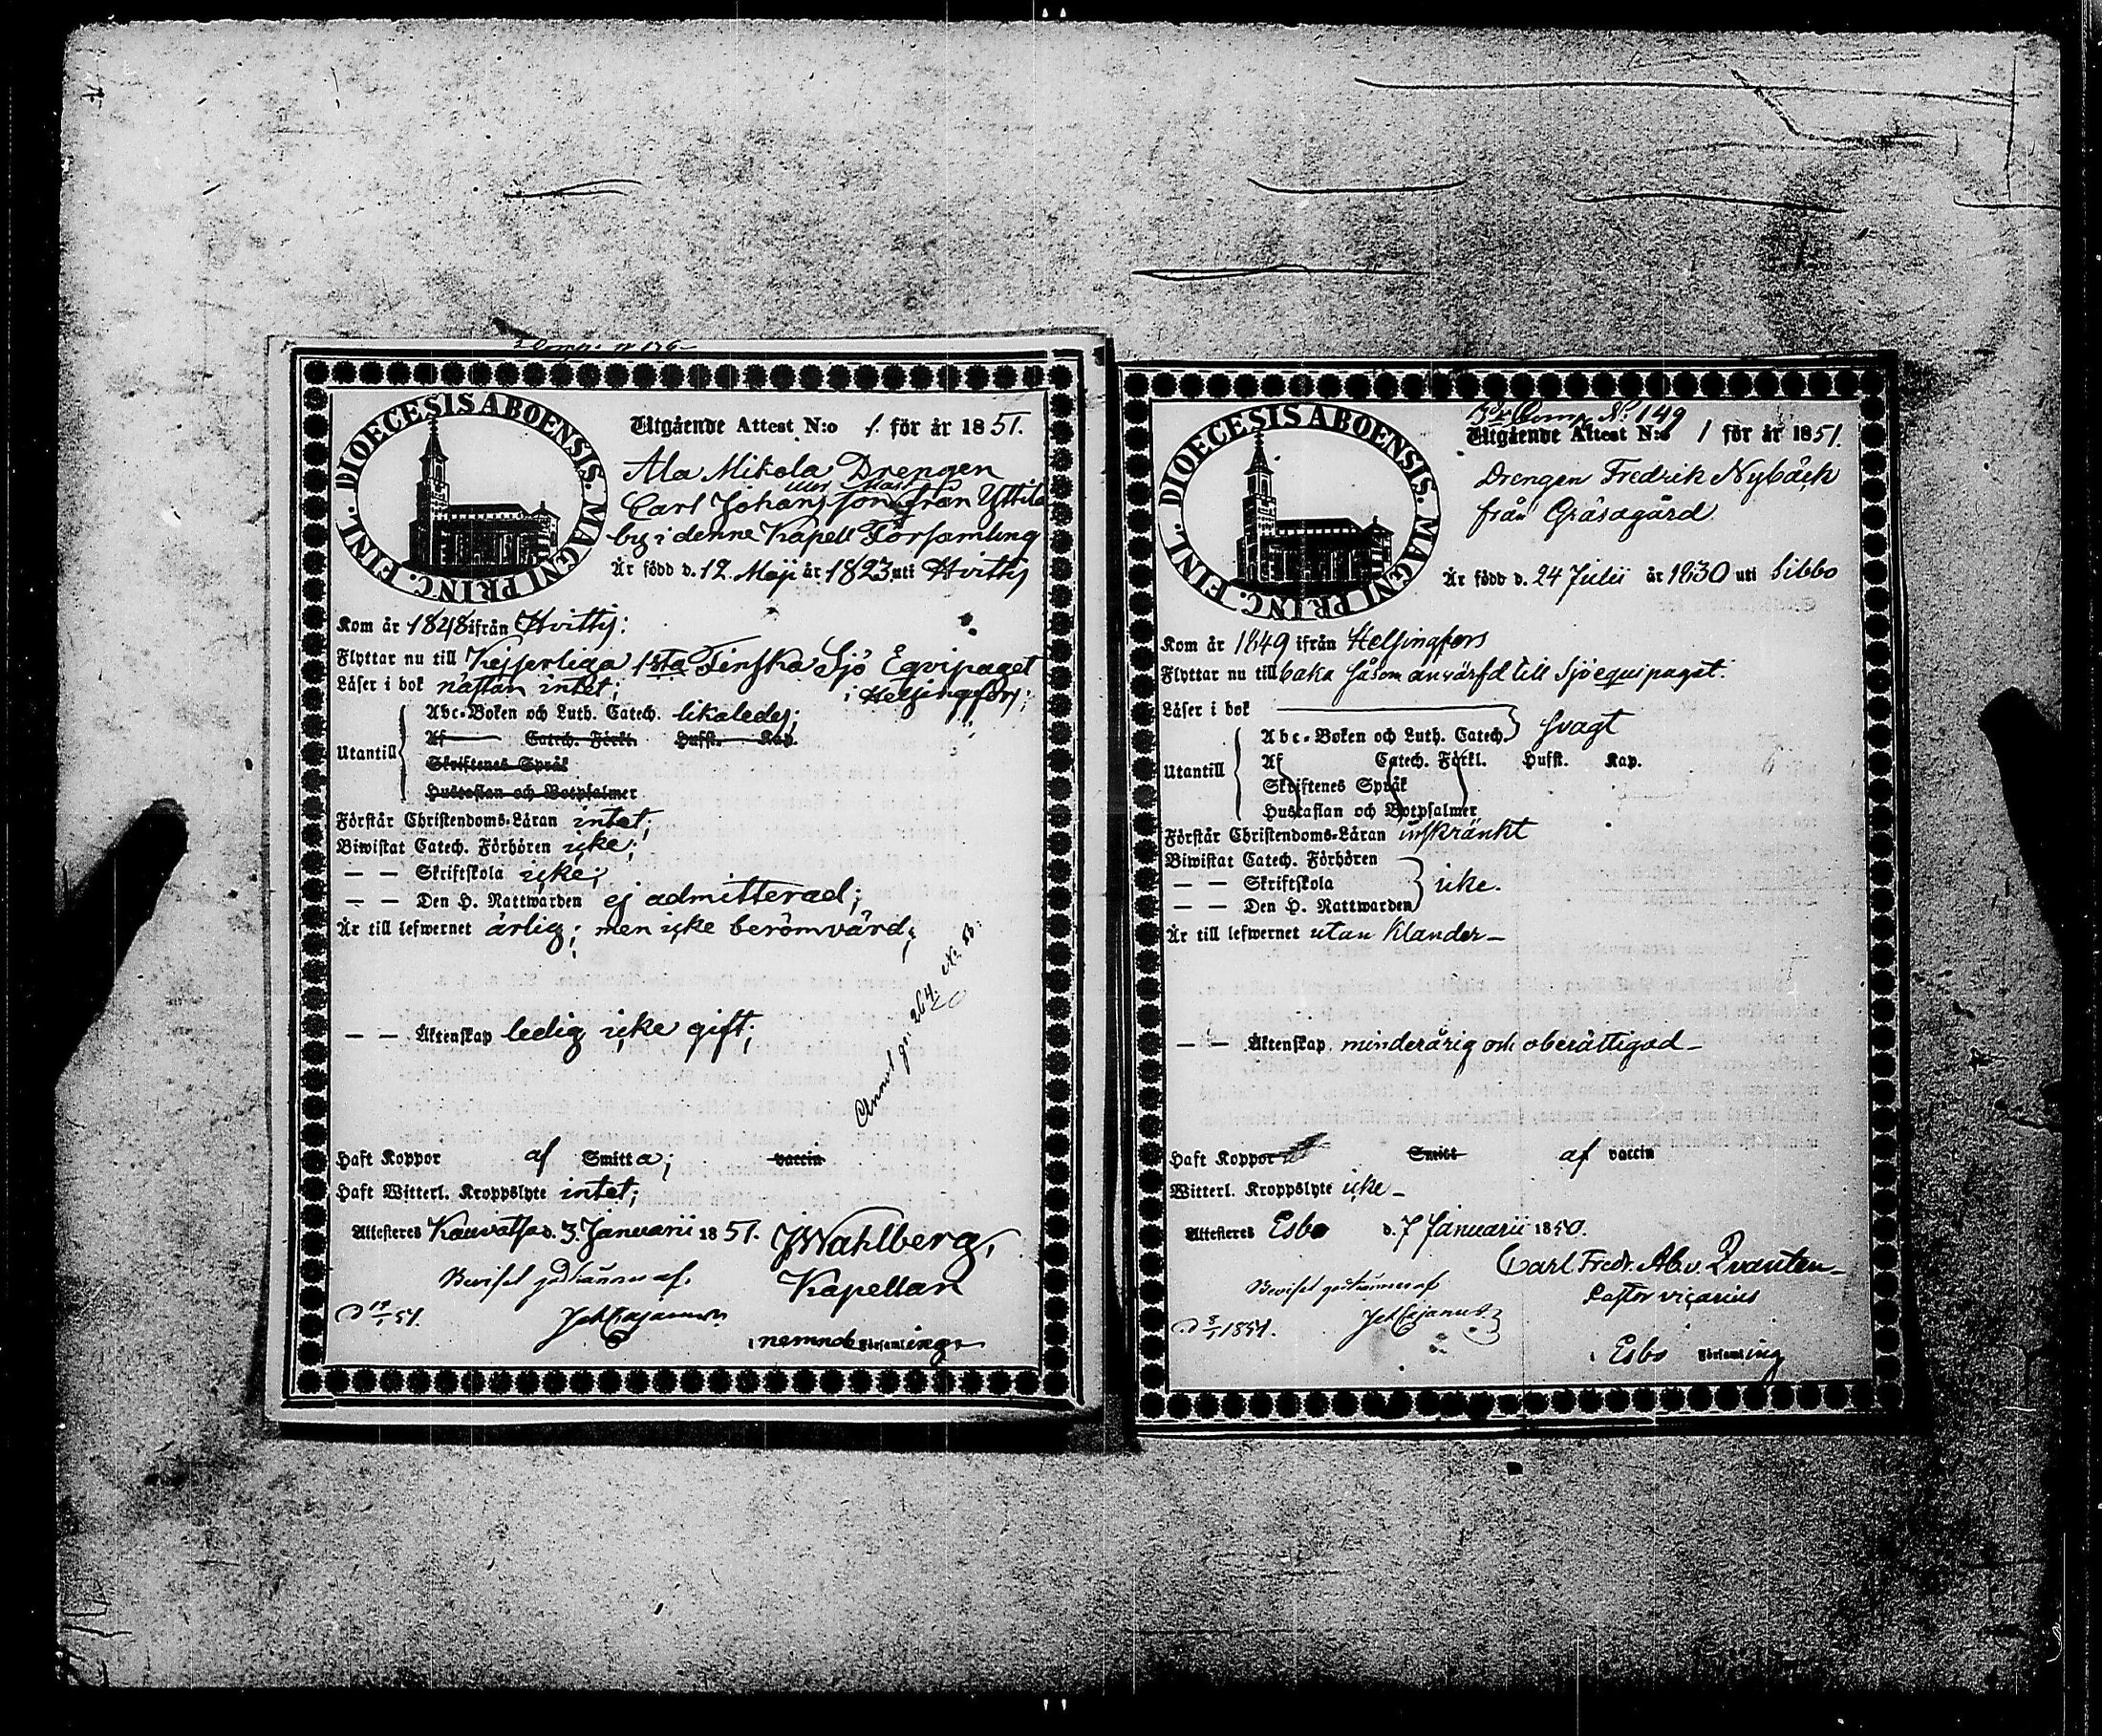 DIOECESIS ABOENSIS. MAGNI PRINC. FINL.
Utgående Attest N:o 1. för år 1851.
Ala Mikola Drengen
Carl Johansson från Yttilä
by i denne Kapell Församling
Är född d. 12 Maji år 1823 uti Hvittis
Kom år 1848 ifrån Hvittis:
Flyttar nu till Kejserliga 1sta Finska Sjö Eqvipaget
i Helsingfors;
Läser i bok nästan intet;
Utantill
Abc-Boken och Luth. Catech. likaledes;
Af Catech. Förkl. Husst. Kap.
Skriftenes Språk
Hustaflan och Botpsalmer
Förstår Christendoms-Läran intet;
Biwistat Catech. Förhören icke;
— — Skriftskola icke;
— — Den H. Nattwarden ej admitterad;
Är till lefwernet ärlig; men icke berömvärd;
— — Äktenskap ledig icke gift;
Annot. pag. 264. No. 13:
Haft Koppor af Smitta; vaccin
Haft Witterl. Kroppslyte intet;
Attesteres Kauvatsa d. 3 Januarii 1851. JWahlberg,
Kapellan
Beviset godkännes af.
i nemnde Församling
DIOECESIS ABOENSIS. MAGNI PRINC. FINL.
3e Comp. No 149
Utgående Attest N:o 1 för år 1851.
Drengen Fredrik Nybäck
från Gräsagård
Är född d. 24 Julii år 1830 uti Sibbo
Kom år 1849 ifrån Helsingfors
Flyttar nu till baka såsom anvärfd till Sjöequipaget.
Läser i bok
Utantill
Abc-Boken och Luth. Catech. svagt
Af Catech. Förkl. Husst. Kap.
Skriftenes Språk
Hustaflan och Botpsalmer
Förstår Christendoms-Läran inskränkt
Biwistat Catech. Förhören
— — Skriftskola icke.
— — Den H. Nattwarden
Är till lefwernet utan klander —
— — Äktenskap minderårig och oberättigad —
Haft Koppor Smitt af vaccin
Witterl. Kroppslyte icke —
Attesteres Esbo d. 7 Januarii 1850.
Carl Fredr. Ab. v. Qvanten
Pastor vicarius
Beviset godkännes af
d 8/1 1851.
i Esbo Församling